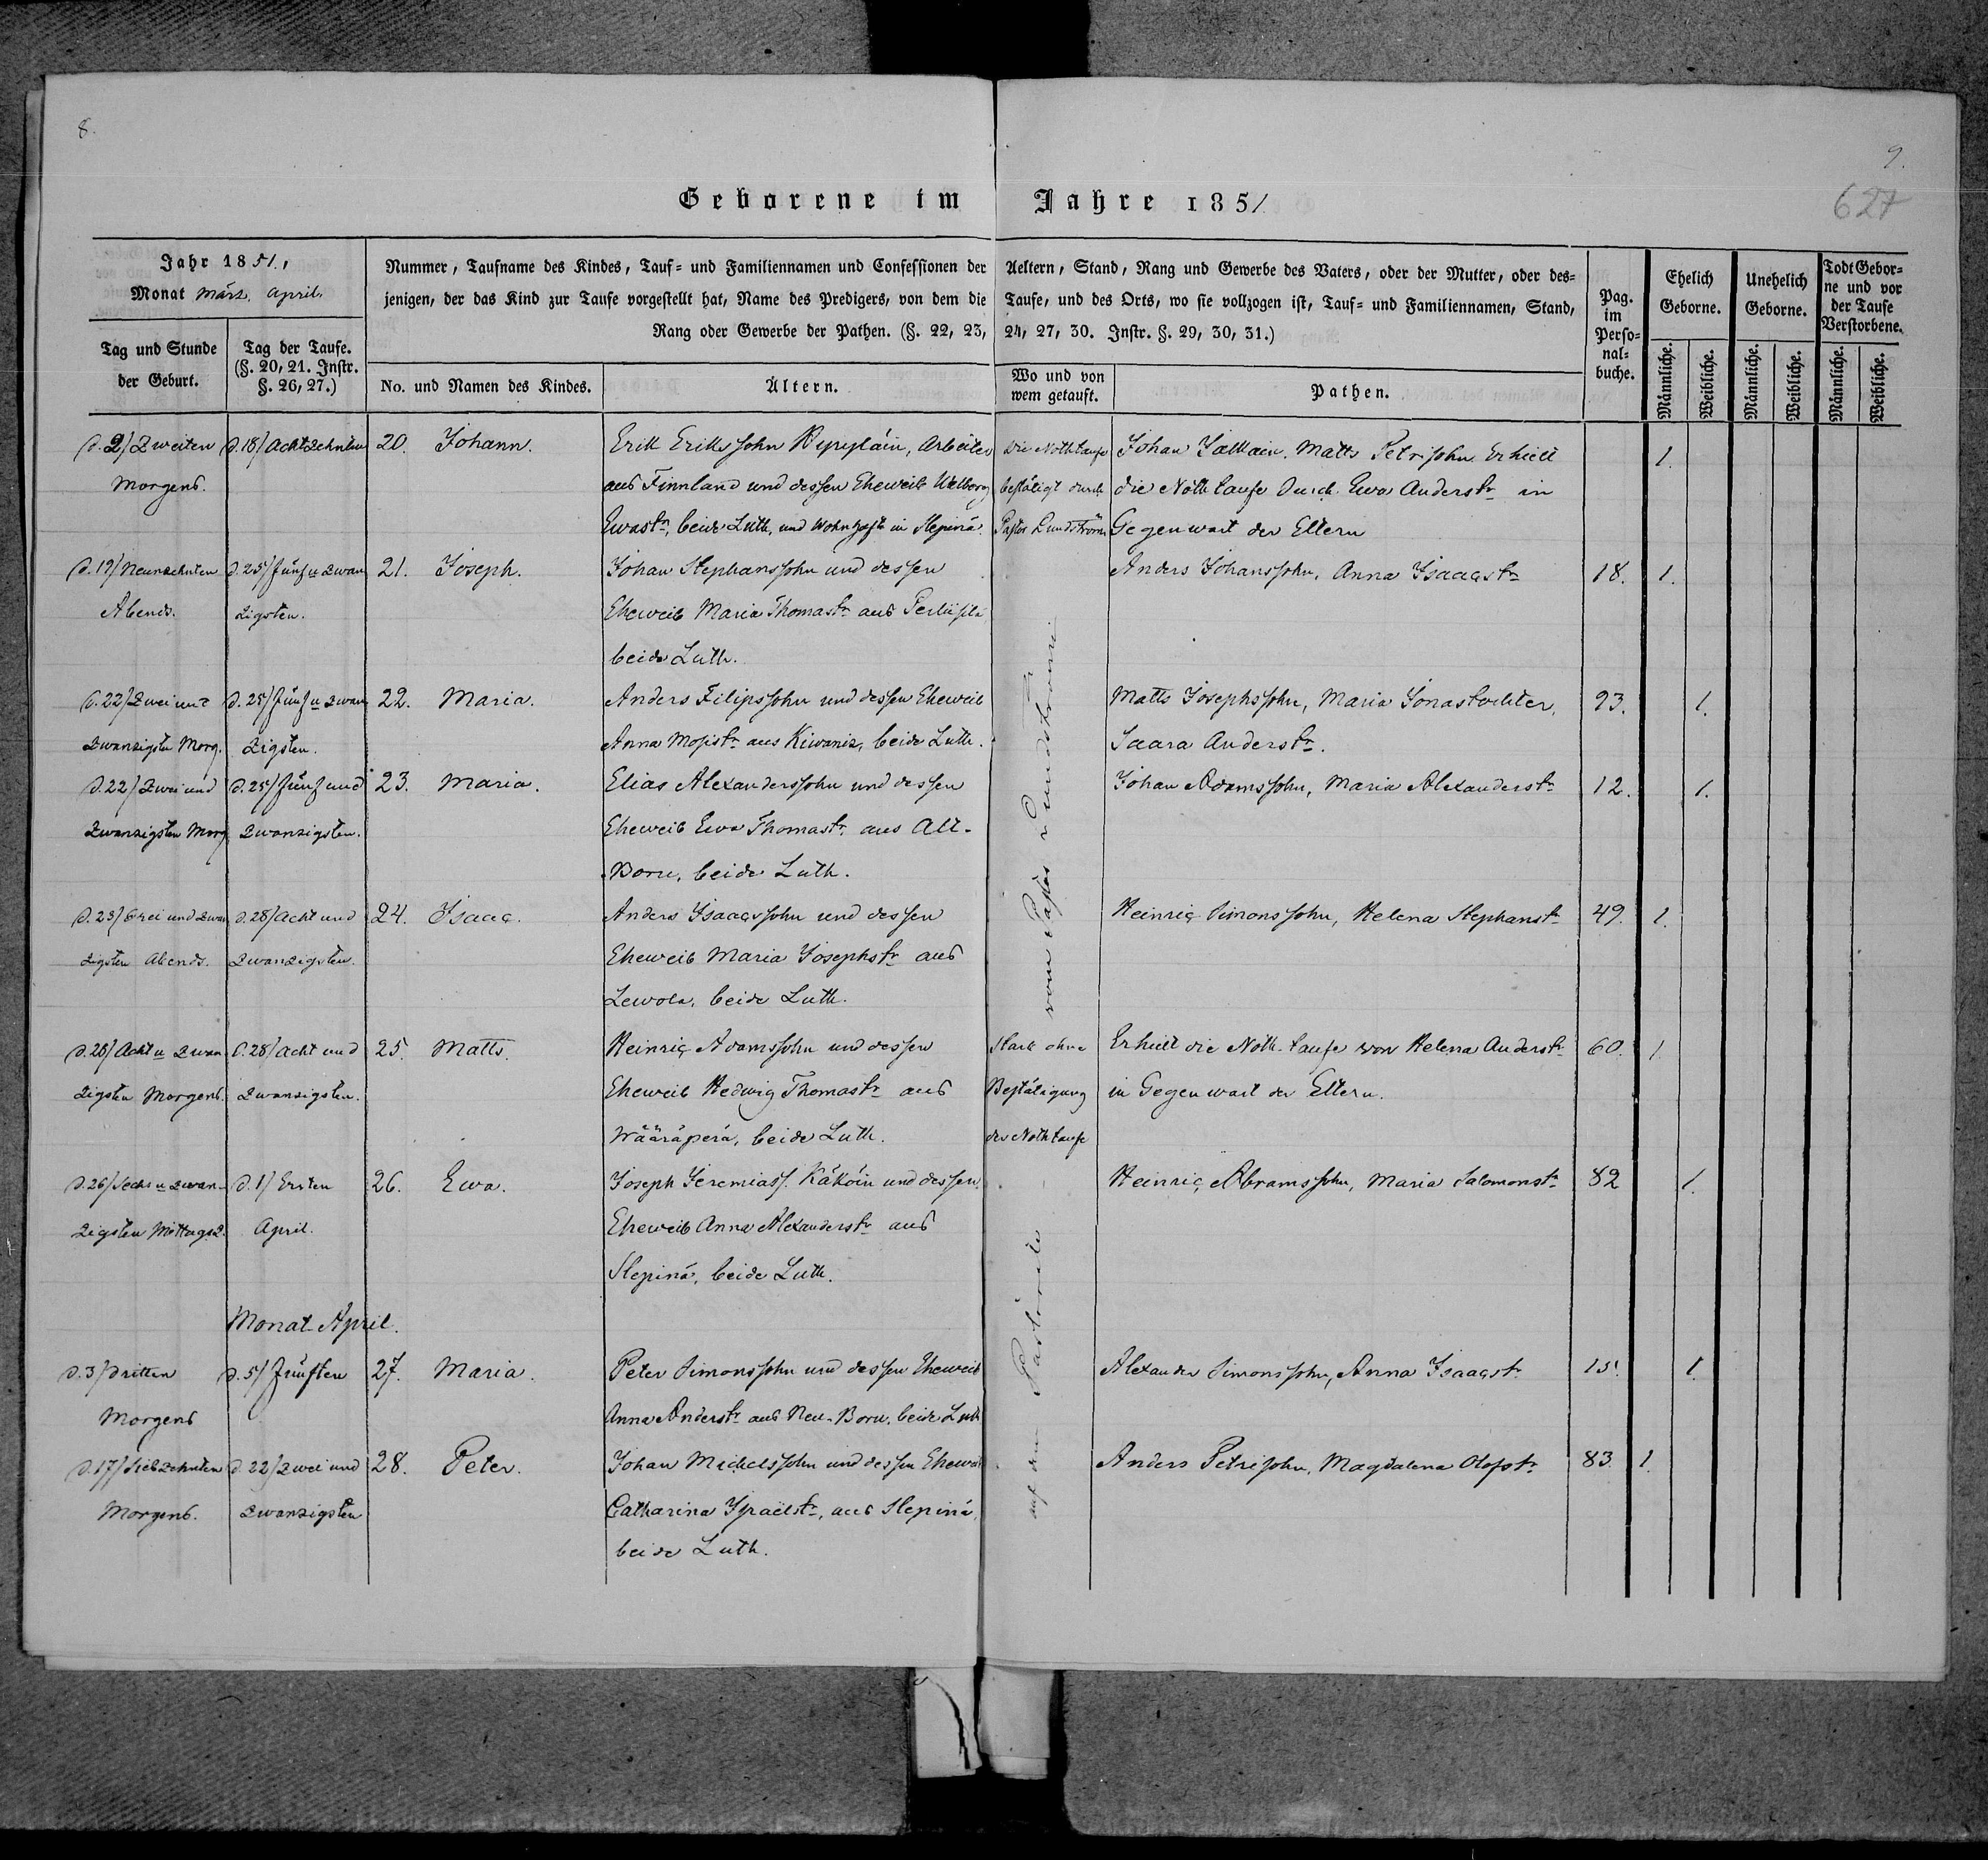 8.
9.
627
Geborene im Jahre 1851
Jahr 1851,
Monat März. April.
Tag und Stunde der Geburt.
Tag der Taufe. (§. 20, 21. Instr. §. 26, 27.)
Nummer, Taufname des Kindes, Tauf- und Familiennamen und Confessionen der Aeltern, Stand, Rang und Gewerbe des Vaters, oder der Mutter, oder des-
jenigen, der das Kind zur Taufe vorgestellt hat, Name des Predigers, von dem die Taufe, und des Orts, wo sie vollzogen ist, Tauf- und Familiennamen, Stand,
Rang oder Gewerbe der Pathen. (§. 22, 23, 24, 27, 30. Instr. §. 29, 30, 31.)
No. und Namen des Kindes.
Ältern.
Wo und von wem getauft.
Pathen.
Pag. im Perso-nal-buche.
Ehelich Geborne.
Unehelich Geborne.
Todt Gebor-ne und vor der Taufe Verstorbene.
Männliche. Weibliche. Männliche. Weibliche. Männliche. Weibliche.
d. 2/ Zweiten d. 18/ Achtzehnten 20. Johann. Erik Erikssohn Kyryläin, Arbeiter Die Nothtaufe Johan Jakkain. Matts Petrisohn. Erhielt 1.
Morgens. aus Finnland und dessen Eheweib Walborg bestätigt durch die Nothtaufe durch Ewa Anderstr in
Ewastr, beide Luth. und wohnhaft in Slepinä. Pastor Lundström Gegenwart der Eltern
d. 19/ Neunzehnten d. 25/ Fünf u zwan 21. Joseph. Johan Stephanssohn und dessen Anders Johanssohn, Anna Isaacstr 18. 1.
Abends. zigsten. Eheweib Maria Thomastr aus
beide Luth.
d. 22/ Zwei und d. 25/ Fünf u zwan 22. Maria. Anders Filipssohn und dessen Eheweib Matts Josephssohn, Maria Jonastochter, 93. 1.
zwanzigsten Morg. zigsten. Anna Mosistr aus Kiwaniz, beide Luth. Saara Anderstr.
d. 22/ Zwei und d. 25/ Fünf und 23. Maria. Elias Alexanderssohn und dessen Johan Adamssohn, Maria Alexanderstr 12. 1.
zwanzigsten Morg. zwanzigsten. Eheweib Ewa Thomastr aus Alt-
Boru, beide Luth.
d. 23/ Drei und zwan d. 28/ Acht und 24. Isaac. Anders Isaacssohn und dessen Heinric Simonssohn, Helena Stephanstr 49. 1.
zigsten Abends. zwanzigsten. Eheweib Maria Josephstr aus
Lewola, beide Luth.
d. 28/ Acht u zwan d. 28/ Acht und 25. Matts. Heinric Adamssohn und dessen Starb ohne Erhielt die Noth-taufe von Helena Anderstr 60. 1.
zigsten Morgens. zwanzigsten. Eheweib Hedwig Thomastr aus Bestätigung in Gegenwart der Eltern.
Wääräperä, beide Luth. der Nothtaufe
d. 26/ Sechs u zwan- d. 1/ Ersten 26. Ewa. Joseph Jeremiass. Käköin und dessen Heinric Abramssohn, Maria Salomonstr 82 1.
zigsten Mittags 2. April. Eheweib Anna Alexanderstr aus
Slepinä, beide Luth.
Monat April.
d. 3/ Dritten d. 5/ Fünften 27. Maria. Peter Simonssohn und dessen Eheweib Alexander Simonssohn, Anna Isaacstr 15. 1.
Morgens Anna Anderstr aus Neu-Boru, beide Luth
d. 17/ Siebzehnten d. 22/ Zwei und 28. Peter. Johan Michelssohn und dessen Eheweib Anders Petrisohn, Magdalena Olofstr 83. 1.
Morgens. zwanzigsten Catharina Israëlstr, aus Slepinä,
beide Luth.
auf dem Pastorate vom Pastor Lundström